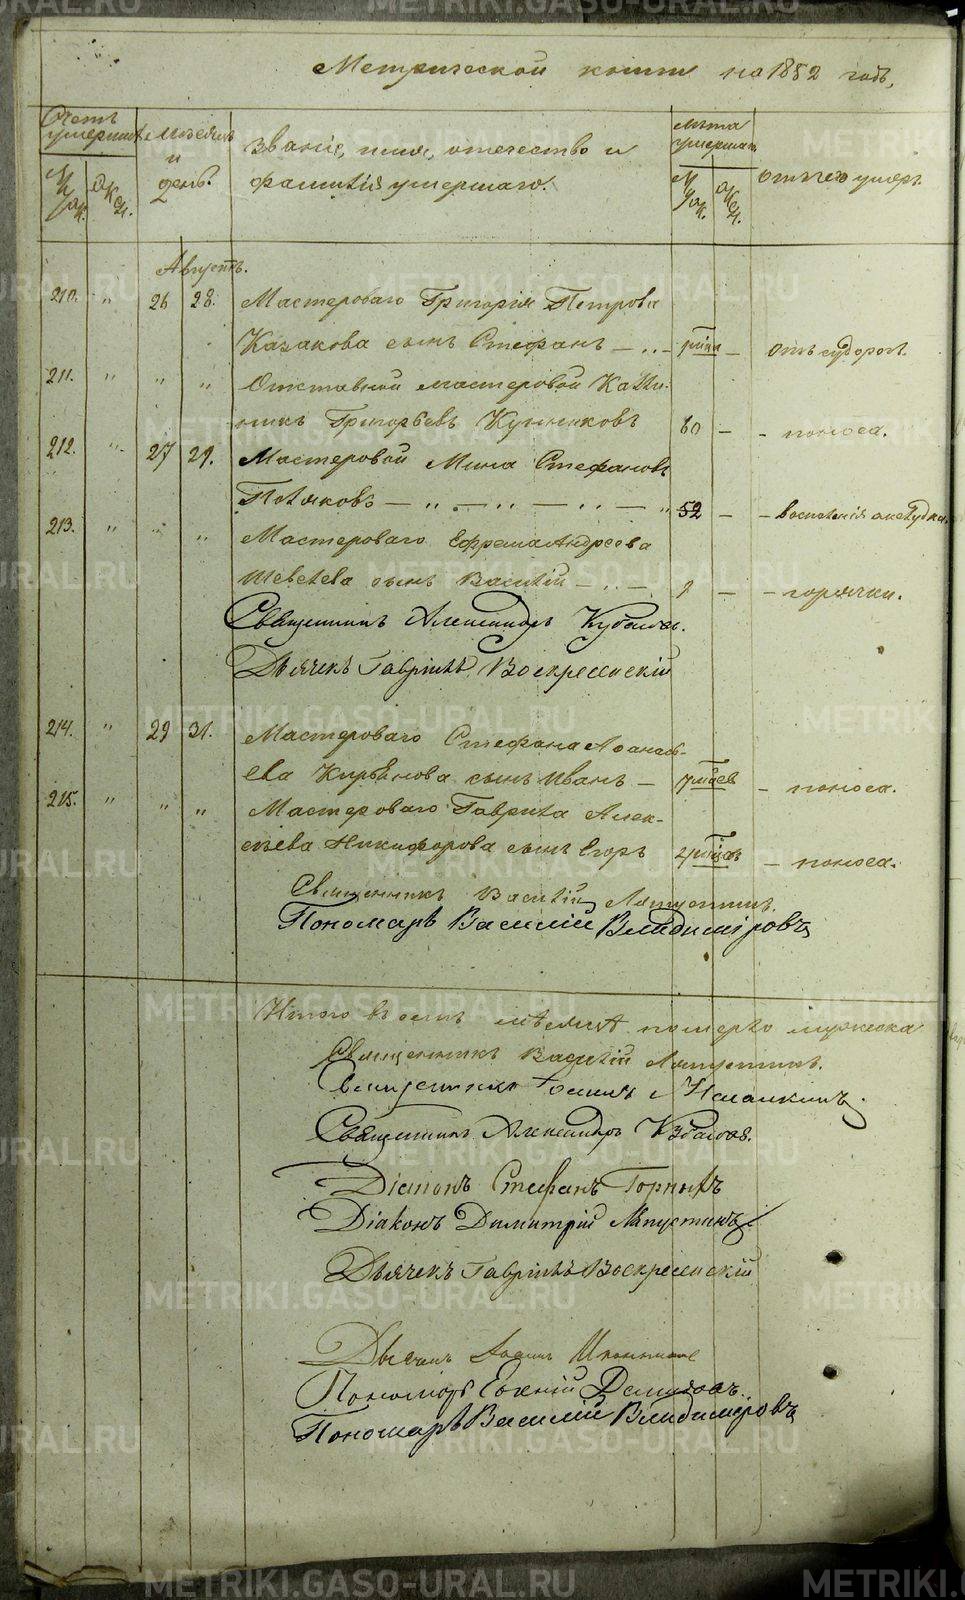 Метрической книги на 1852 годъ,
Счетъ умершихъ
Муж.
Жен.
Месяцъ и день.
Званіе, имя, отечество и фамилія умершаго.
Лета умершаго.
Муж.
Жен.
Отъ чего умеръ.
Августъ.
210. " 26 28. Мастероваго Григорія Петрова
Казакова сынъ Стефанъ — " — — отъ судорог.
211. " " " Отставной мастеровой Калли-
никъ Григорьевъ 60 — — поноса.
212. " 27 29. Мастеровой Мина Стефановъ
Поляковъ — " — " — " — " 52 — — воспаленія
213. " " " Мастероваго Ефрема Андреева
Шевелева сынъ Василій — " — — — горячки.
Священникъ Александръ
Дьячекъ Гавріилъ Воскресенскій
214. " 29 31. Мастероваго Стефана Афанась-
ева Кирьянова сынъ Иванъ — — поноса.
215. " " " Мастероваго Гаврила Алек-
сѣева Никифорова сынъ Егоръ — поноса.
Священникъ Василій Ляпустинъ.
Пономарь Василій Владиміровъ
Итого въ семъ мѣсяцѣ померло мужеска
Священникъ Василій Ляпустинъ.
Священникъ
Священникъ Александръ
Діаконъ Стефанъ Горныхъ
Діаконъ Димитрій Ляпустинъ
Дьячекъ Гавріилъ Воскресенскій
Дьячекъ
Пономарь Евгеній
Пономарь Василій Владиміровъ
METRIKI.GASO-URAL.RU